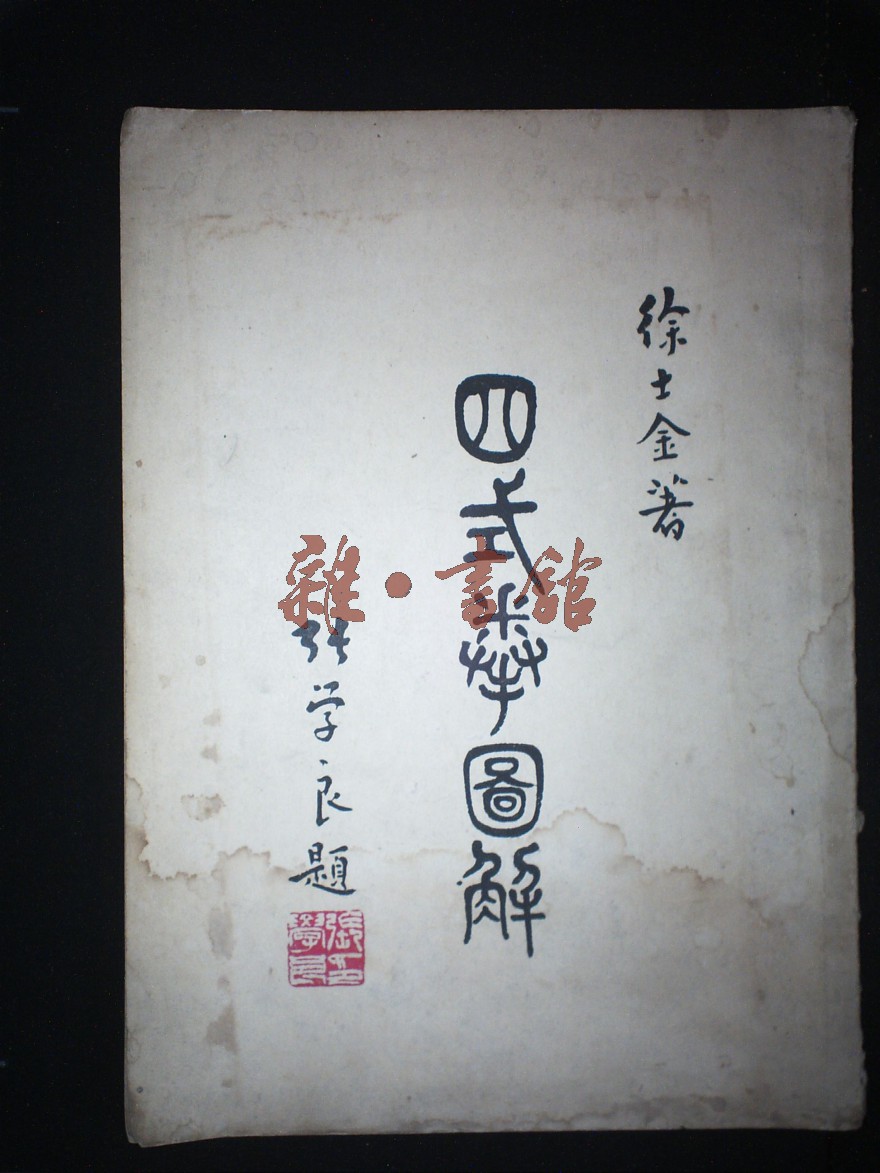 徐士金著
四式拳圖解
张学良題
張學良印
雜·書館